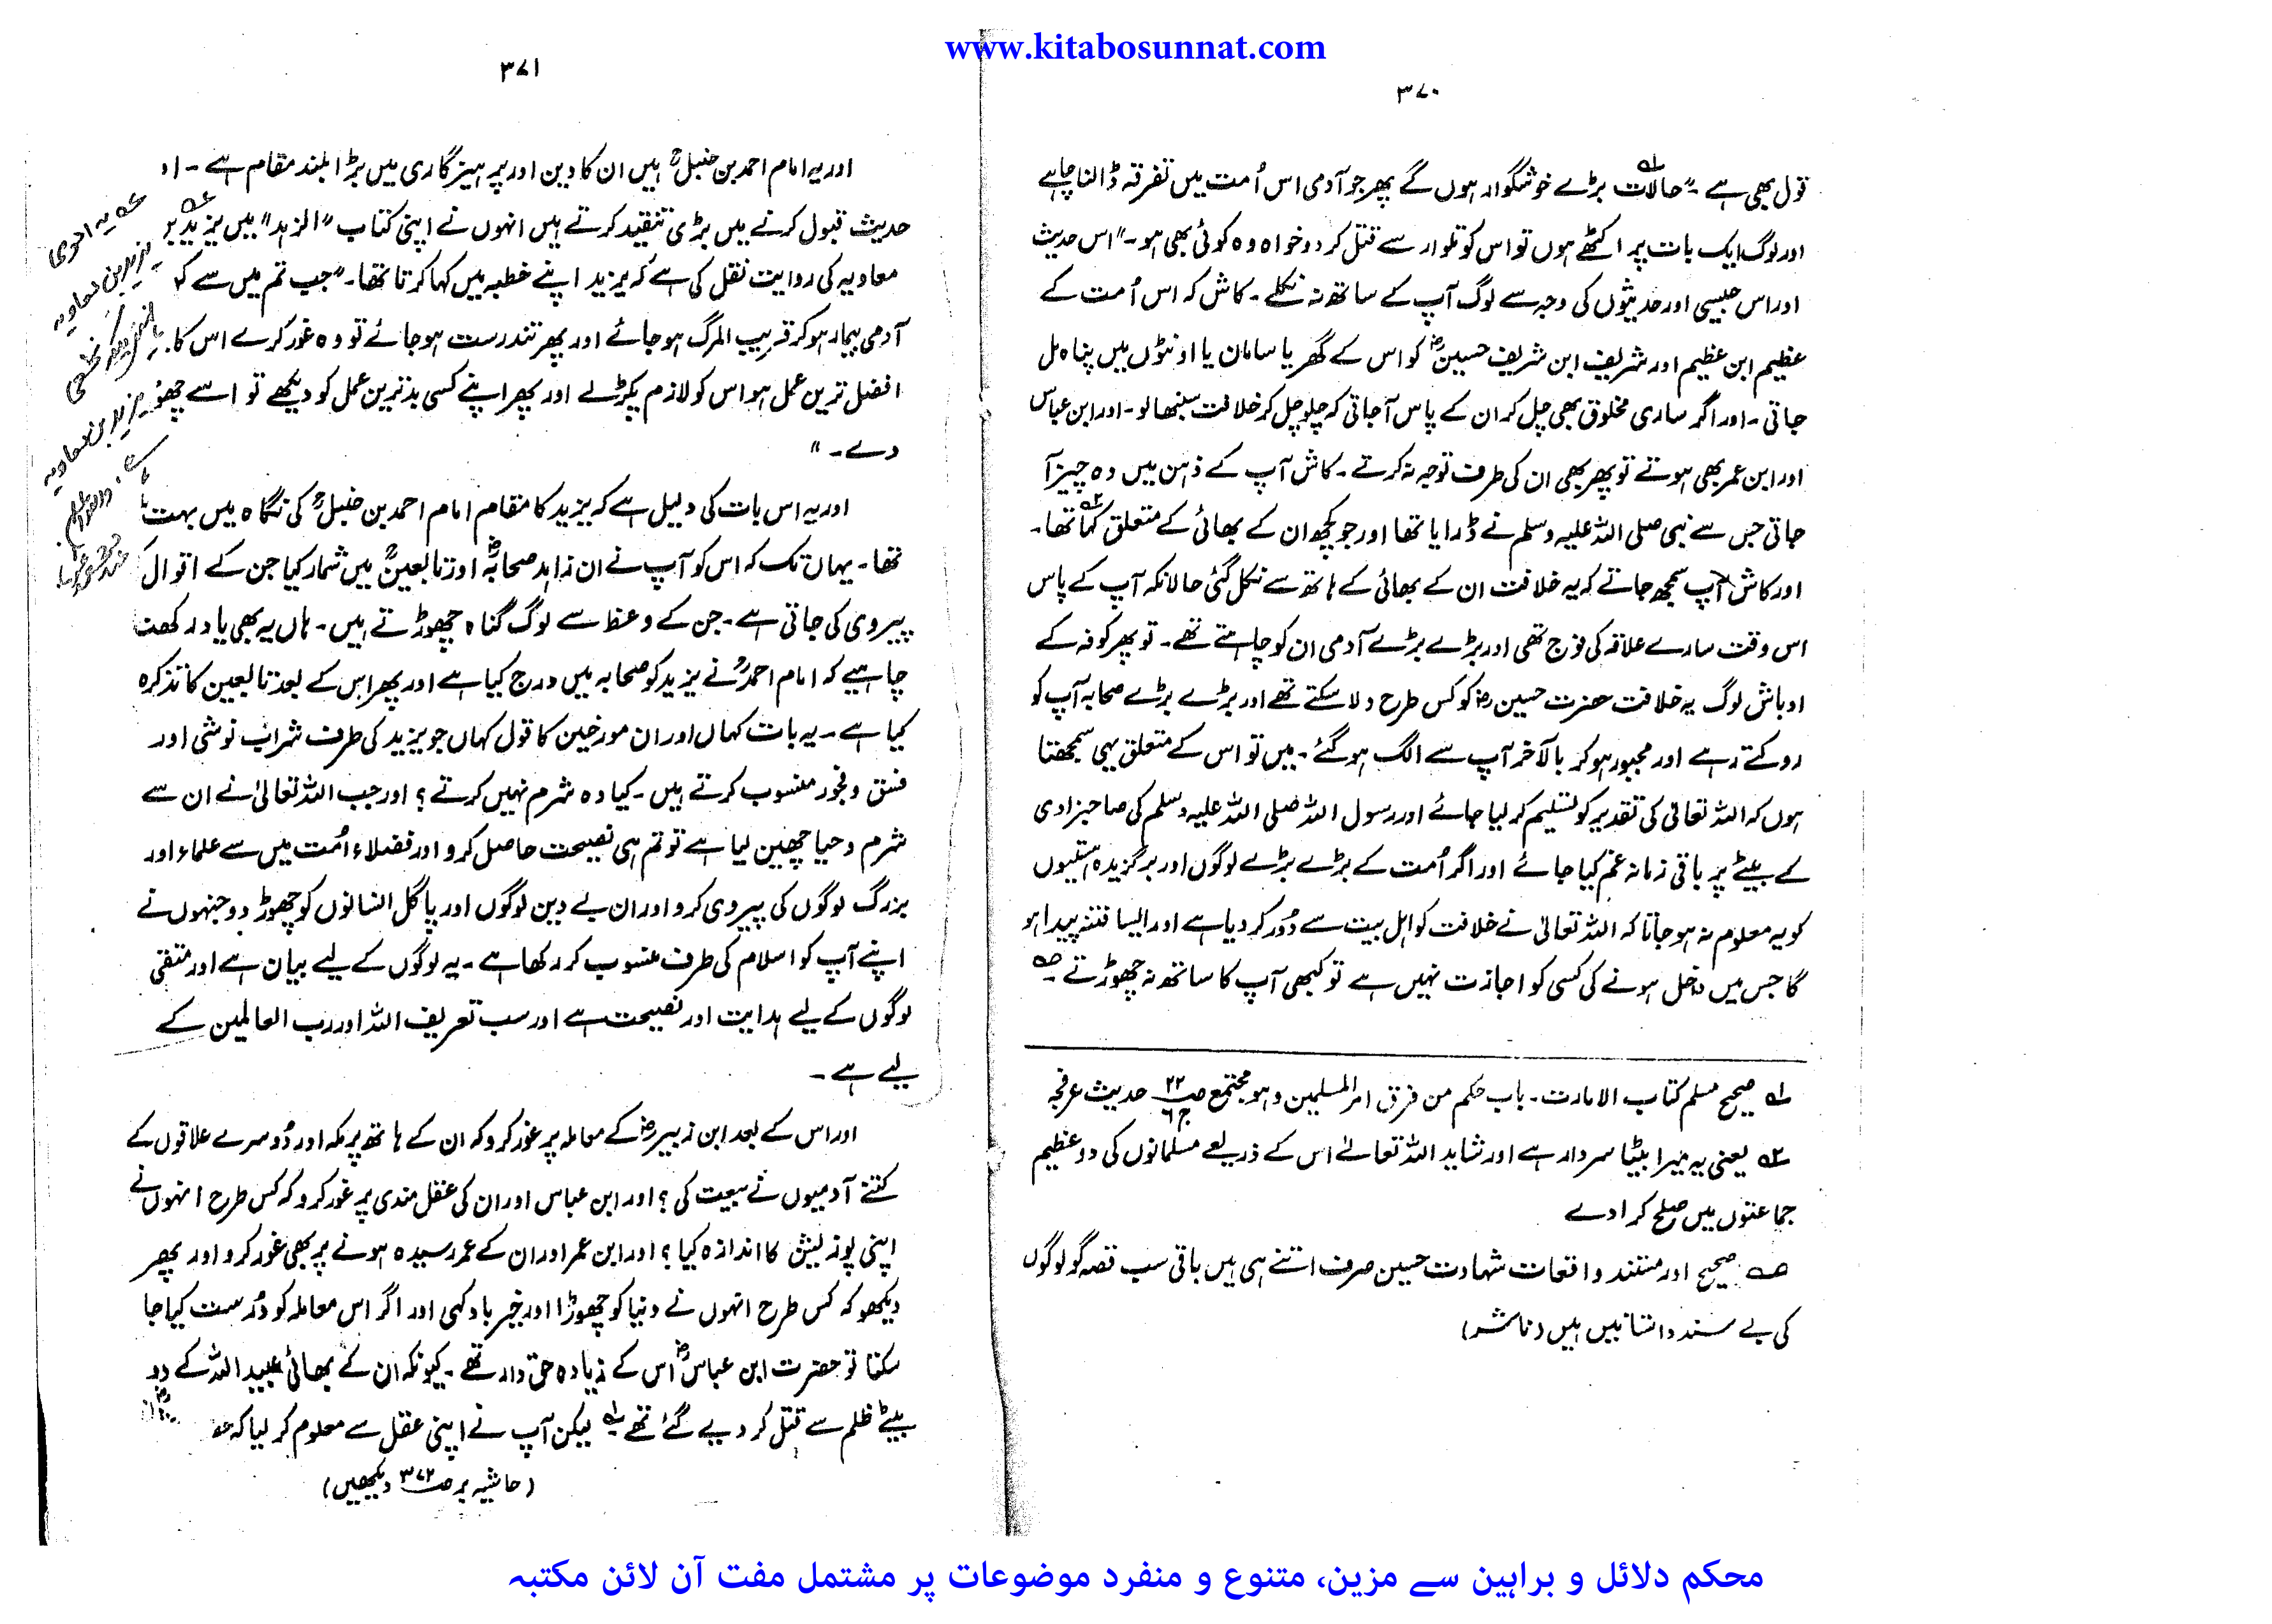 www.kitabosunnat.com
۳۷۰
قول بھی ہے۔ "حالات بڑے خوشگوار ہوں گے پھر جو آدمی اس اُمت میں تفرقہ ڈالنا چاہے
اور لوگ ایک بات پر اکٹھے ہوں تو اس کو تلوار سے قتل کر دو خواہ وہ کوئی بھی ہو۔" اس حدیث
اور اس جیسی اور حدیثوں کی وجہ سے لوگ آپ کے ساتھ نہ نکلے۔ کاش کہ اس اُمت کے
عظیم ابن عظیم اور شریف ابن شریف حسینؓ کو اس کے گھر یا سامان یا اونٹوں میں پناہ مل
جاتی۔ اور اگر ساری مخلوق بھی چل کر ان کے پاس آ جاتی کہ چلو چل کر خلافت سنبھالو۔ اور ابن عباس
اور ابن عمر بھی ہوتے تو پھر بھی ان کی طرف توجہ نہ کرتے۔ کاش آپ کے ذہن میں وہ چیز آ
جاتی جس سے نبی صلی اللہ علیہ وسلم نے ڈرایا تھا اور جو کچھ ان کے بھائی کے متعلق کہا۲ تھا۔
اور کاش آپ سمجھ جاتے کہ یہ خلافت ان کے بھائی کے ہاتھ سے نکل گئی حالانکہ آپ کے پاس
اس وقت سارے علاقہ کی فوج تھی اور بڑے بڑے آدمی ان کو چاہتے تھے۔ تو پھر کوفہ کے
اوباش لوگ یہ خلافت حضرت حسین رضؓ کو کس طرح دلا سکتے تھے اور بڑے بڑے صحابہ آپ کو
روکتے رہے اور مجبور ہو کر بالآخر آپ سے الگ ہو گئے۔ میں تو اس کے متعلق یہی سمجھتا
ہوں کہ اللہ تعالی کی تقدیر کو تسلیم کر لیا جائے اور رسول اللہ صلی اللہ علیہ وسلم کی صاحبزادی
کے بیٹے پر باقی زمانہ غم کیا جائے اور اگر اُمت کے بڑے بڑے لوگوں اور برگزیدہ ہستیوں
کو یہ معلوم نہ ہو جاتا کہ اللہ تعالیٰ نے خلافت کو اہل بیت سے دُور کر دیا ہے اور ایسا فتنہ پیدا ہو
گا جس میں داخل ہونے کی کسی کو اجازت نہیں ہے تو کبھی آپ کا ساتھ نہ چھوڑتے۔۳
۱ صحیح مسلم کتاب الامارت۔ باب حکم من فرق امر المسلمین وہو مجتمع ص۲۲ ج۶ حدیث عرفجہ
۲ یعنی یہ میرا بیٹا سردار ہے اور شاید اللہ تعالےٰ اس کے ذریعے مسلمانوں کی دو عظیم
جماعتوں میں صلح کرا دے
۳ صحیح اور مستند واقعات شہادت حسین صرف اتنے ہی ہیں باقی سب قصہ گو لوگوں
کی بے سند داستانیں ہیں (ناشر)
۳۷۱
اور یہ امام احمد بن حنبلؒ ہیں ان کا دین اور پرہیزگاری میں بڑا بلند مقام ہے۔
حدیث قبول کرنے میں بڑی تنقید کرتے ہیں انہوں نے اپنی کتاب "الزہد" میں یزید
معاویہ کی روایت نقل کی ہے کہ یزید اپنے خطبہ میں کہا کرتا تھا۔ "جب تم میں سے
آدمی بیمار ہو کر قریب المرگ ہو جائے اور پھر تندرست ہو جائے تو وہ غور کرے اس کا
افضل ترین عمل ہو اس کو لازم پکڑ لے اور پھر اپنے کسی بدترین عمل کو دیکھے تو اسے
دے۔"
اور یہ اس بات کی دلیل ہے کہ یزید کا مقام امام احمد بن حنبلؒ کی نگاہ میں بہت
تھا۔ یہاں تک کہ اس کو آپ نے ان زاہد صحابہؓ اور تابعینؒ میں شمار کیا جن کے اقوال
پیروی کی جاتی ہے۔ جن کے وعظ سے لوگ گناہ چھوڑتے ہیں۔ ہاں یہ بھی یاد رکھنا
چاہیے کہ امام احمدؒ نے یزید کو صحابہ میں درج کیا ہے اور پھر اس کے بعد تابعین کا تذکرہ
کیا ہے۔ یہ بات کہاں اور ان مورخین کا قول کہاں جو یزید کی طرف شراب نوشی اور
فسق و فجور منسوب کرتے ہیں۔ کیا وہ شرم نہیں کرتے؟ اور جب اللہ تعالیٰ نے ان سے
شرم و حیا چھین لیا ہے تو تم ہی نصیحت حاصل کرو اور فضلاء اُمت میں سے علماء اور
بزرگ لوگوں کی پیروی کرو اور ان بے دین لوگوں اور پاگل انسانوں کو چھوڑ دو جنہوں نے
اپنے آپ کو اسلام کی طرف منسوب کر رکھا ہے۔ یہ لوگوں کے لیے بیان ہے اور متقی
لوگوں کے لیے ہدایت اور نصیحت ہے اور سب تعریف اللہ اور رب العالمین کے
لیے ہے۔
اور اس کے بعد ابن زبیر رضؓ کے معاملہ پر غور کرو کہ ان کے ہاتھ پر مکہ اور دُوسرے علاقوں کے
کتنے آدمیوں نے بیعت کی؟ اور ابن عباس اور ان کی عقل مندی پر غور کرو کہ کس طرح انہوں نے
اپنی پوزیشن کا اندازہ کیا؟ اور ابن عمر اور ان کے عمر رسیدہ ہونے پر بھی غور کرو اور پھر
دیکھو کہ کس طرح انہوں نے دنیا کو چھوڑا اور خیر باد کہی اور اگر اس معاملہ کو دُرست کیا جا
سکتا تو حضرت ابن عباسؓ اس کے زیادہ حق دار تھے۔ کیونکہ ان کے بھائی عبید اللہ کے دو
بیٹے ظلم سے قتل کر دیے گئے تھے۱ لیکن آپ نے اپنی عقل سے معلوم کر لیا کہ
(حاشیہ برص ۳۷۲ دیکھیں)
یہ اموی
یزید بن معاویہ
یزید بن معاویہ
محکم دلائل و براہین سے مزین، متنوع و منفرد موضوعات پر مشتمل مفت آن لائن مکتبہ